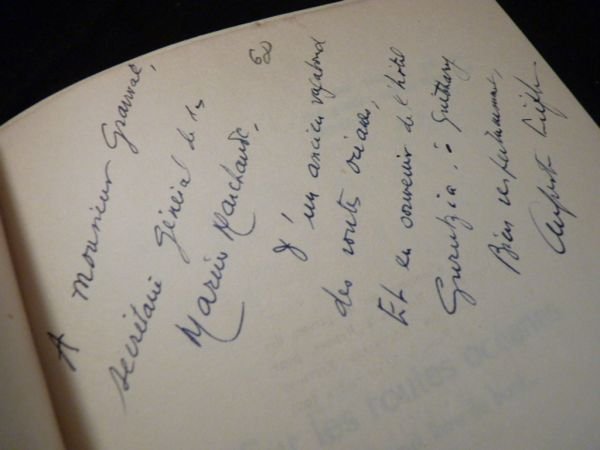 A monsieur Granval,
secrétaire général de la
Marine Marchande,
60
d'un ancien vagabond
des routes océanes,
Et en souvenir de l'hôtel
Gurutzia, à Guéthary
Bien respectueusement,
Sur les routes océanes